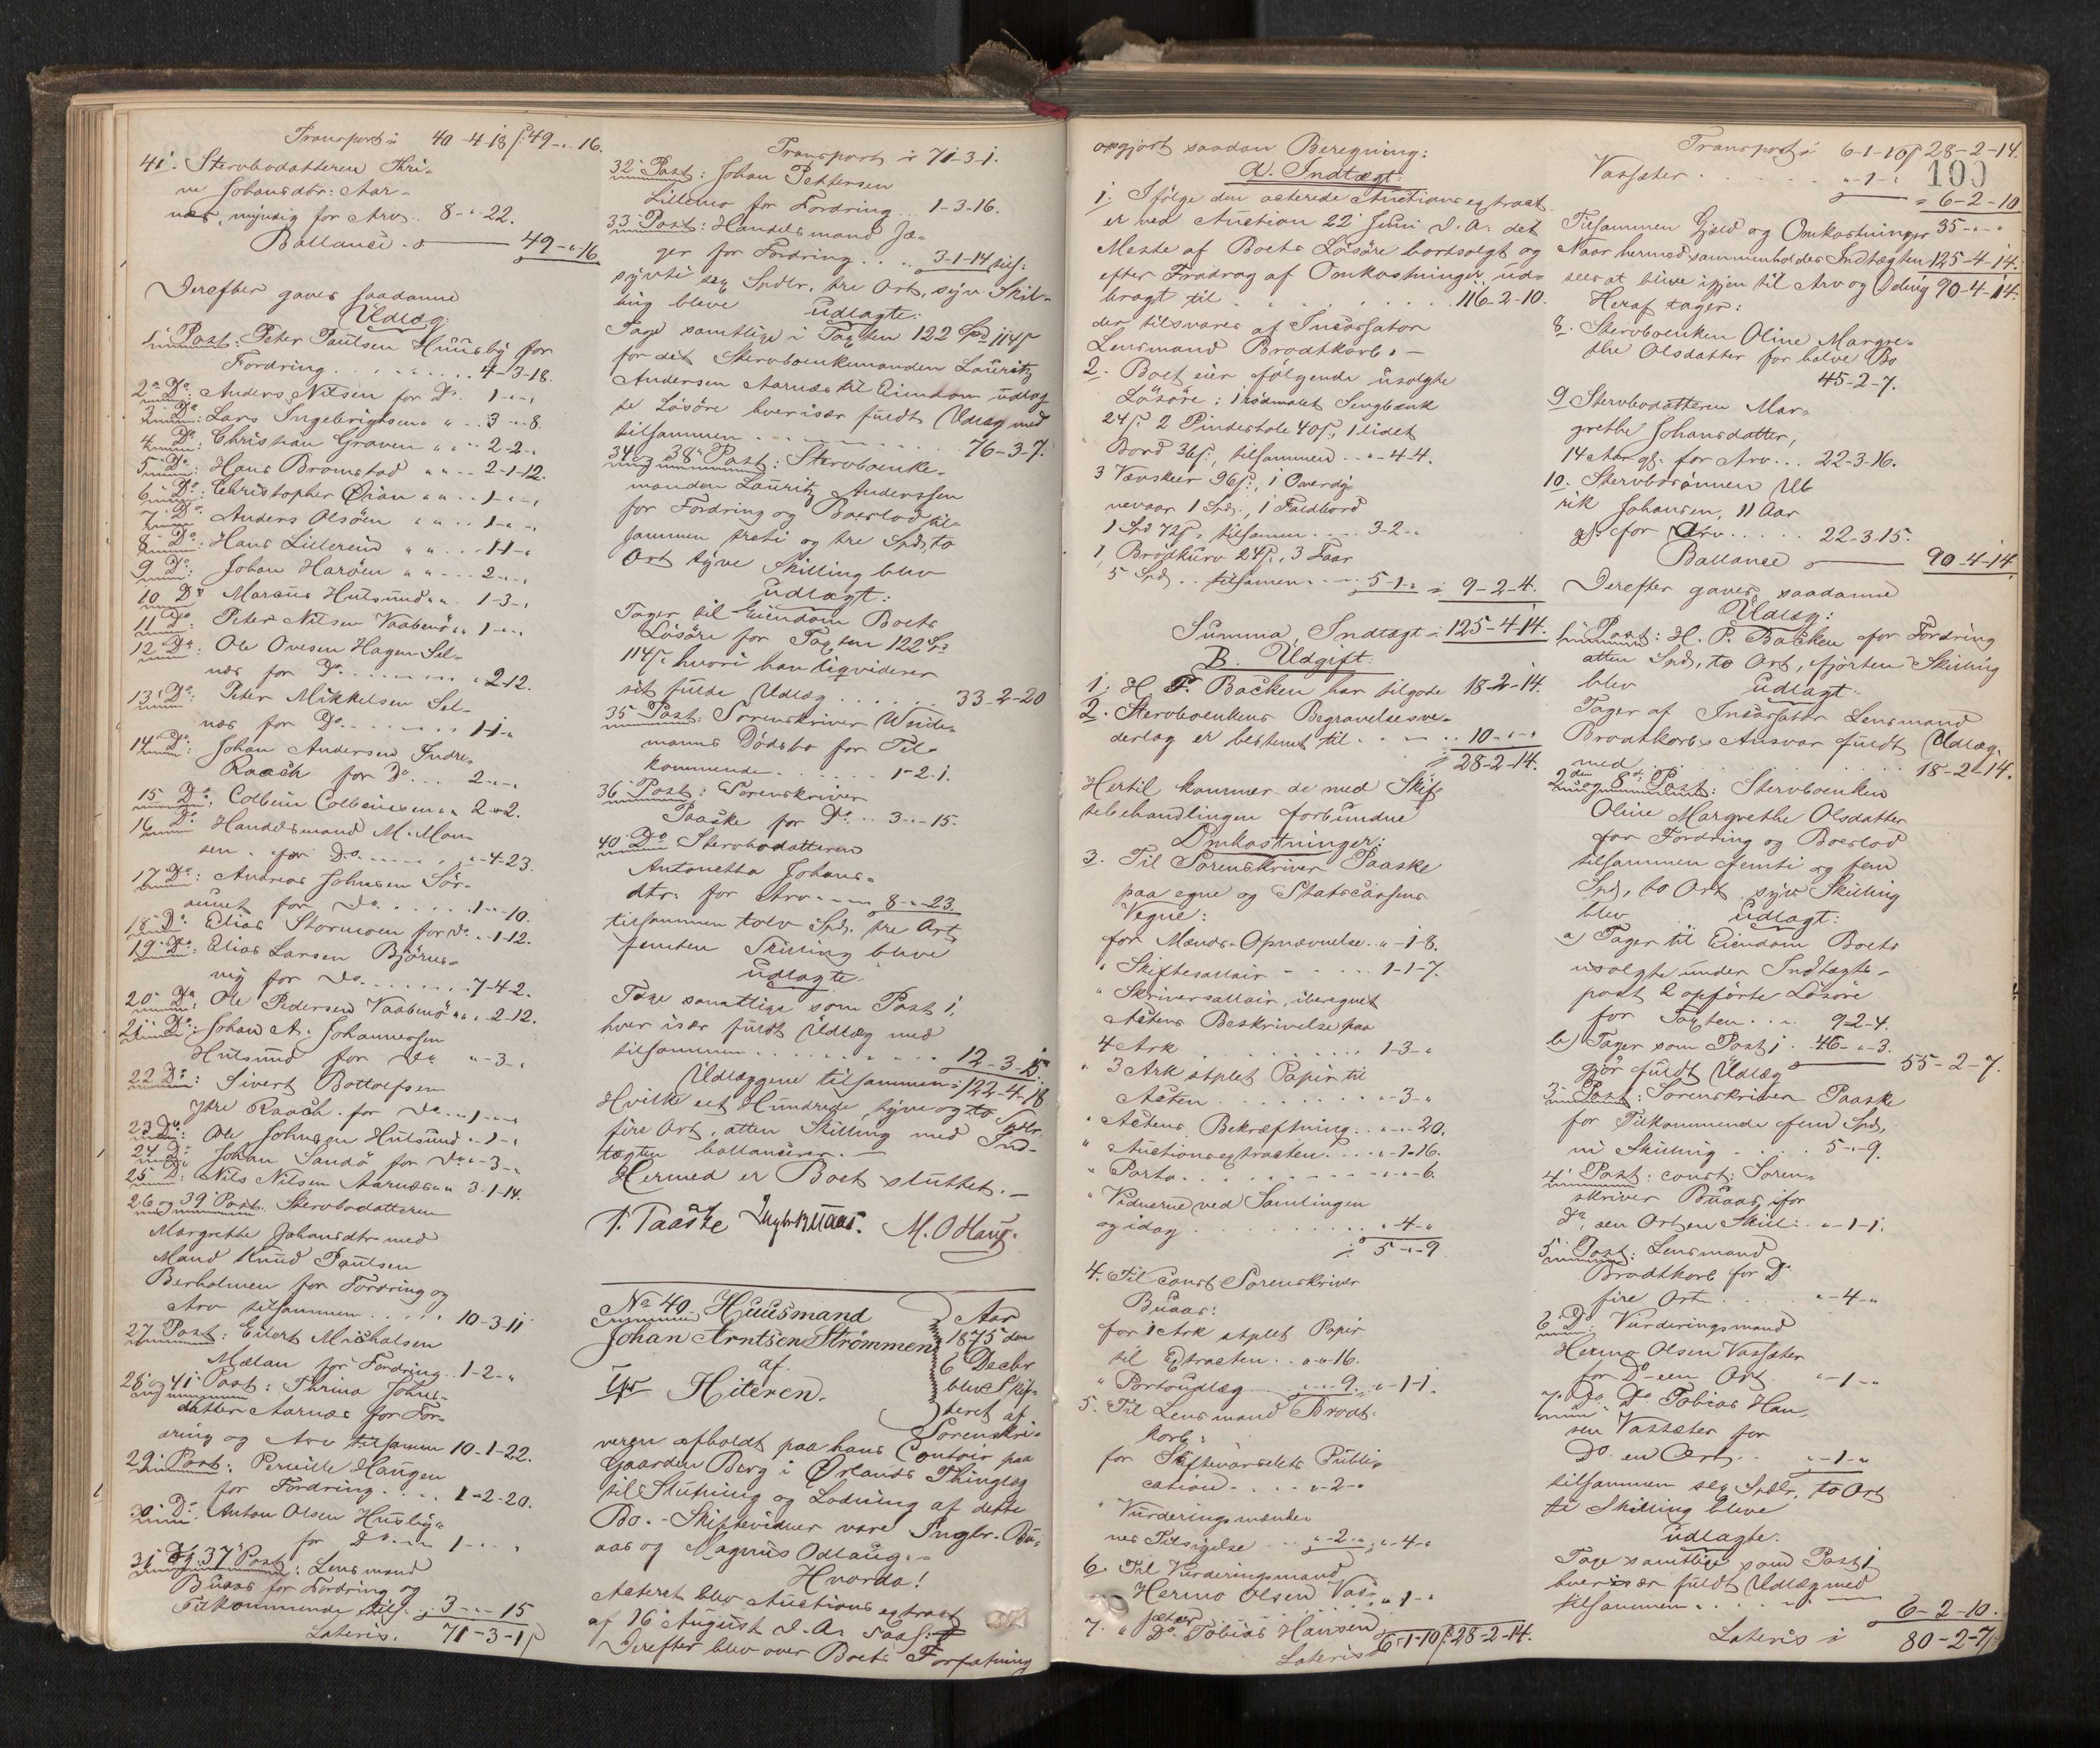 Transport i 40-4-18 ſ. 49-"-16.
41. Stervbodatteren Thri-
ne Johansdtr: Aar-
næs, myndig for Arv.. 8-"-22.
Ballance.
49-"-16
Derefter gaves saadanne
Udlæg:
1. Post: Peter Paulsen Huusby for
Fordring......... 4-3-18.
2. Do: Anders Nilsen for Do. 1-"-"
3. Do: Lars Ingebrigtsen " .. 3-"-8.
4. Do: Christian Graven " " .. 2-2-"
5. Do: Hans Bromstad " " .. 2-1-12.
6. Do: Christopher Ørian " " .. 1-"-"
7. Do: Anders Olsöen " " .. 1-"-"
8. Do: Hans Lillereid " " ... 1-1-"
9. Do: Johan Haröen " " ... 2-"-"
10. Do: Marcus Hulsund " " . 1-3-"
11. Do: Peter Nilsen Vaabenö " " 1-"-"
12. Do: Ole Ovesen Hagen Sel-
næs for Do........ "-2-12.
13. Do: Peter Mikkelsen Sel-
næs for Do....... 1-1-"
14. Do: Johan Andersen Indre-
Raasch for Do... 2-"-"
15. Do: Colbein Colbeinsen " " 2-"-2.
16. Do: Handelsmand M. Mon-
sen. for Do....... "-4-23.
17. Do: Andreas Johnsen Sör-
aunet for Do...... 1-"-10.
18. Do: Elias Stormoen for Do.. 1-12.
19. Do: Elias Larsen Björne-
vig for Do........ 7-4-2.
20. Do: Ole Pedersen Vaabenö " " "-2-12.
21. Do: Johan A. Johannessen
Hulsund for Do "-3-"
22. Do: Sivert Bottolfsen
Ytre Raasch. for Do... 1-"-"
23. Do: Ole Johnsen Hulsund "-1-"
24. Do: Johan Sandö for Do "-3-"
25. Do: Nils Nilsen Aarnæs " " 3-1-14.
26. og 39. Post. Stervbodatteren
Margrethe Johansdtr med
Mand Knud Paulsen
Berholmen for Fordring og
Arv tilsammen..... 10-3-11
27. Post: Eilert Michalsen
Mælan for Fordring.. 1-2-"
28. og 41. Post: Thrina Johns-
datter Aarnæs for For-
dring og Arv tilsamm 10-1-22.
29. Post: Pernille Haugen
for Fordring..... 1-2-20.
30. Do: Anton Olsen Husby-
for Do.... 1-"-"
31. og 37. Post: Lensmand
Buaas for Fordring og
Tilkommende tils. 3-"-15
Lateris. 71-3-1 ſ
Transport i 71-3-1.
32. Post: Johan Pettersen
Lillemo for Fordring... 1-3-16.
33. Post: Handelsmand Jæ-
ger for Fordring.... 3-1-14 tils:
syvti sex Spdlr, tre Ort, syv Skil-
ling bleve udlagte:
Tage samtlige i Taxten 122 Spd 114ſ
for det Stervboenkemanden Lauritz
Andersen Aarnæs til Eiendom udlag-
te Lösöre hver især fuldt Udlæg med
tilsammen......... 76-3-7.
34. og 38. Post: Stervboenke-
manden Lauritz Anderssen
for Fordring og Boeslod til-
sammen treti og tre Spd, to
Ort tyve Skilling blev
udlagt:
Tager til Eiendom Boets
Lösöre for Taxten 122 Spd
114ſ hvori han liqviderer
sit fulde Udlæg....... 33-2-20
35. Post: Sorenskriver Weide-
manns Dödsbo for Til-
kommende....... 1-2-1.
36. Post: Sorenskriver
Paaske for Do.. 3-"-15.
40. Do Stervbodatteren
Antonetta Johans-
dtr. for Arv..... 8-"-23.
tilsammen tolv Spd. tre Ort,
femten Skilling bleve
udlagte:
Tage samtlige som Post 1,
hver især fuldt Udlæg med
tilsammen.......... 12-3-15
Udlæggene tilsammen: 122-4-18
Hvilke eet Hundrede, tyve og to Spdlr
fire Ort, atten Skilling med Ind-
tægten ballancerer.-
Hermed er Boet sluttet.-
P. Paaske Ingbr Buaas. M. O Haug.
No 40. Huusmand
Johan Arntsen Strømmen
af
Hiteren.
Aar
1875 den
6 Decbr
blev Skif-
teret af
Sorenskri-
veren afholdt paa hans Contoir paa
Gaarden Berg i Ørlands Thinglag
til Slutning og Lodning af dette
Bo.- Skiftevidner vare Ingbr. Bu-
aas og Magnus Odlaug.-
Hvorda!
Acteret blev Auctions extract
af 16 August d. A. saal:
Derefter blev over Boets Forfatning
opgjort saadan Beregning:
A. Indtægt:
1. Ifölge den acterede Auctionsextract
er ved Auction 22 Juni d. A. det
Meste af Boets Lösöre bortsolgt og
efter Fradrag af Omkostninger ud-
bragt til......... 116-2-10.
der tilsvares af Incassator
Lensmand Brodtkorb.-
2. Boet eier følgende usolgte
Lösöre: 1 rödmalet Sengbænk
24ſ. 2 Pindestole 40ſ, 1 lidet
Bord 36ſ, tilsammen... "-4-4.
3 Værskeer 96ſ, 1 Overdy-
nevaar 1 Spd., 1 Foldbord
1 Spd 72ſ, tilsamen.... 3-2-"
1 Brodkurv 24ſ, 3 Faar
5 Spd.. tilsamen..... 5-1-" = 9-2-4.
Summa Indtægt = 125-4-14.
B. Udgift:
1. H. P. Backen har tilgode 18-2-14.
2. Stervboenkens Begravelsesve-
derlag er bestemt til...... 10-"-"
28-2-14.
Hertil kommer de med Skif-
tebehandlingen forbundne
Omkostninger:
3. Til Sorenskriver Paaske
paa egne og Statscassens
Vegne:
for Mænds-Opnævnelse.. "-1-8.
" Skiftesallair - .... 1-1-7.
" Skriversallair, iberegnet
Actens Beskrivelse paa
4 Ark............ 1-3-"
" 3 Ark stplet Papir til
Acten........... "-3-"
" Actens Bekræftning.. "-"-20.
" Auctionsextracten.... "-1-16.
" Porto............ "-"-6.
" Vidnerne ved Samlingen
og idag.......... "-4-"
5-"-9
4. Til const Sorenskriver
Buaas:
for 1 Ark stplet Papir
til Extracten.. "-"-16.
" Portoudlæg "-"-9. "-1-1.
5. Til Lensmand Brodt-
korb:
for Skiftevarselets Publi-
cation..... "-2-"
" Vurderingsmænde-
nes Tilsigelse .. "-2-" "-4-"
6. Til Vurderingsmand
Hermo Olsen Vas-
sæter ...... "-1-"
7. " Do. Tobias Hansen
Lateris 6-1-10 ſ. 28-2-14.
Transport i 6-1-10 ſ 28-2-14.
100
Vassæter....... "-1-"
= 6-2-10
Tilsammen Gjæld og Omkostninger 35-"-"
Naar hermed sammenholdes Indtægten 125-4-14.
sees at blive igjen til Arv og Deling 90-4-14.
Heraf tager:
8. Stervboenken Oline Margre-
the Olsdatter for halve Bo
45-2-7.
9. Stervbodatteren Mar-
grethe Johansdatter,
14 Aar gl. for Arv... 22-3-16.
10. Stervbosönnen Ul-
rik Johansen, 11 Aar
gl. for Arv..... 22-3-15.
Ballance 90-4-14
Derefter gaves saadanne
Udlæg:
1. Post: H. P. Backen for Fordring
atten Spd, to Ort, fjorten Skilling
blev udlagt:
Tager af Incassator Lensmand
Brodtkorbs Ansvar fuldt Udlæg
med......... 18-2-14.
2den og 8de Post: Stervboenken
Oline Margrethe Olsdatter
for Fordring og Boeslod
tilsammen femti og fem
Spd, to Ort syv Skilling
blev udlagt:
a) Tager til Eiendom Boets
usolgte under Indtægts-
post 2 opförte Lösöre
for Taxten.... 9-2-4.
b) Tager som Post 1. 46-"-3.
gjør fuldt Udlæg 55-2-7.
3. Post: Sorenskriver Paaske
for Tilkommende fem Spd,
ni Skilling .... 5-"-9.
4. Post: const: Soren-
skriver Buaas for
Do, een Ort en Skill: "-1-1.
5. Post: Lensmand
Brodtkorb for Do
fire Ort..... "-4-"
6. Do: Vurderingsmand
Hermo Olsen Vassæter
for Do een Ort. "-1-"
7. Do: Do Tobias Han-
sen Vassæter for
Do. en Ort... "-1-"
tilsammen sex Spdlr, to Ort
ti Skilling bleve
udlagte:
Tage samtlige som Post 1
hver især fuldt Udlæg med
tilsammen.......
6-2-10.
Lateris i 80-2-7.